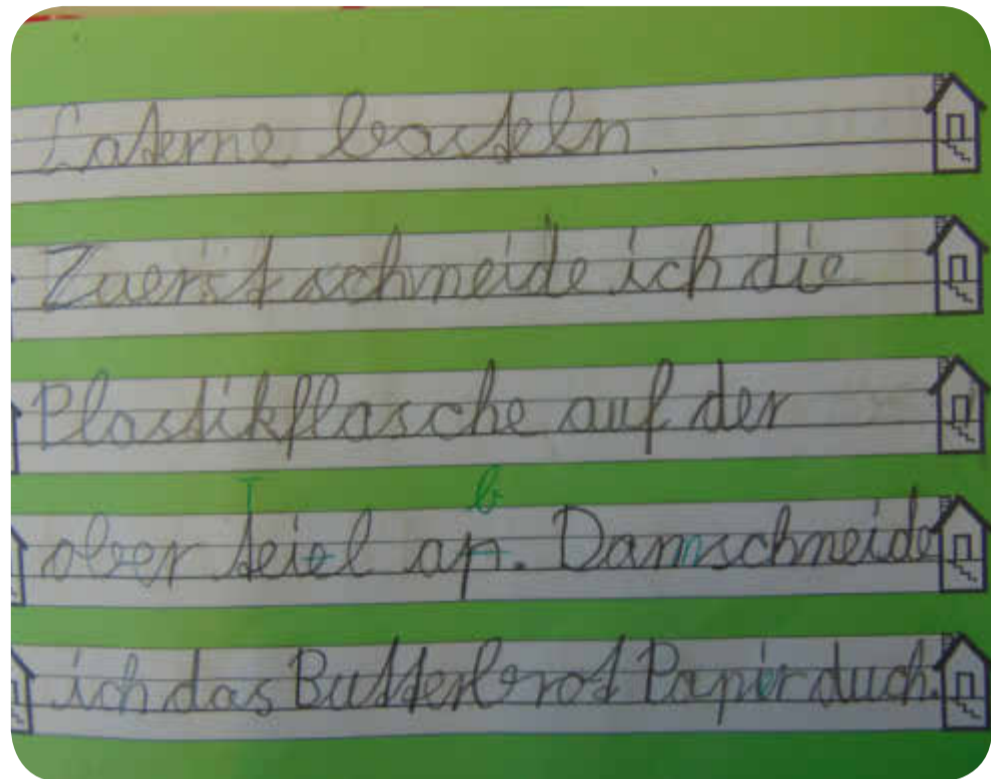 Laterne basteln
Zuerst schneide ich die
Plastikflasche auf der
T b
ober teiel ap. Dann schneide
ich das Butterbrot Papier duch.